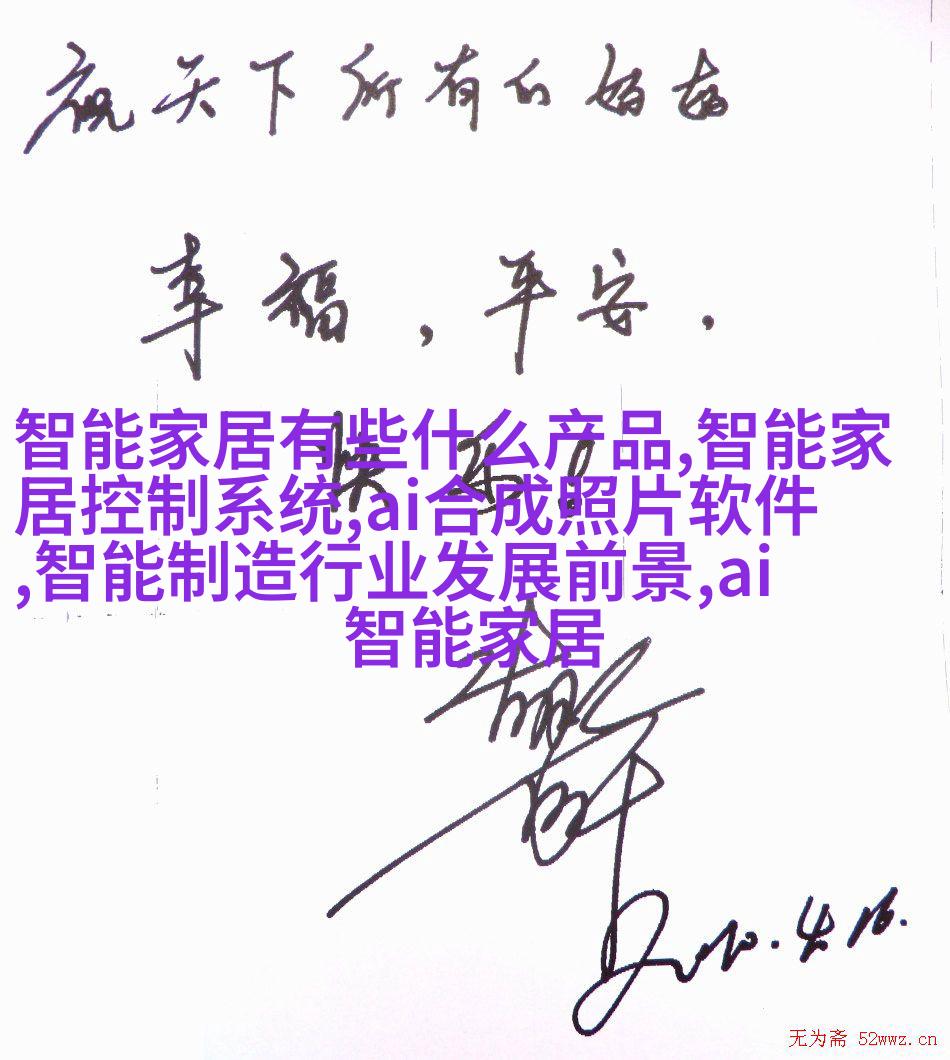 祝天下所有的妈妈
幸福，平安，
快乐！
智能家居有些什么产品,智能家
居控制系统,ai合成照片软件
,智能制造行业发展前景,ai
智能家居
2010.4.16.
无为斋 52wwz.cn